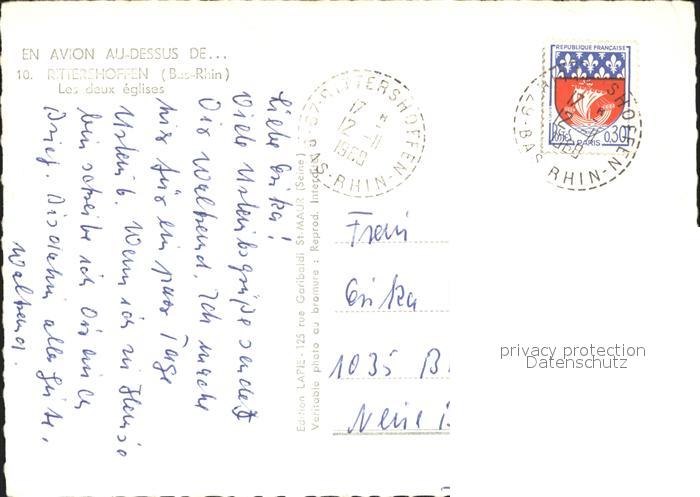 EN AVION AU-DESSUS DE...
10. RITTERSHOFFEN (Bas-Rhin)
Les deux églises
Liebe Erika!
Viele Urlaubsgrüße sendet
Dir Waltraud. Ich mache
hier für ein paar Tage
Urlaub. Wenn ich zu Hause
bin schreibe ich Dir einen
Brief. Bis dahin alles Gute,
Waltraud.
Edition LAPIE - 125 rue Garibaldi St-MAUR (Seine)
Véritable photo au bromure : Reprod. Interdite
67-RITTERSHOFFEN
17 H
12-11
1969
BAS-RHIN
REPUBLIQUE FRANÇAISE
POSTES
0,30
PARIS
BAS-RHIN
Frau
Erika
1035 B
Neue
privacy protection
Datenschutz